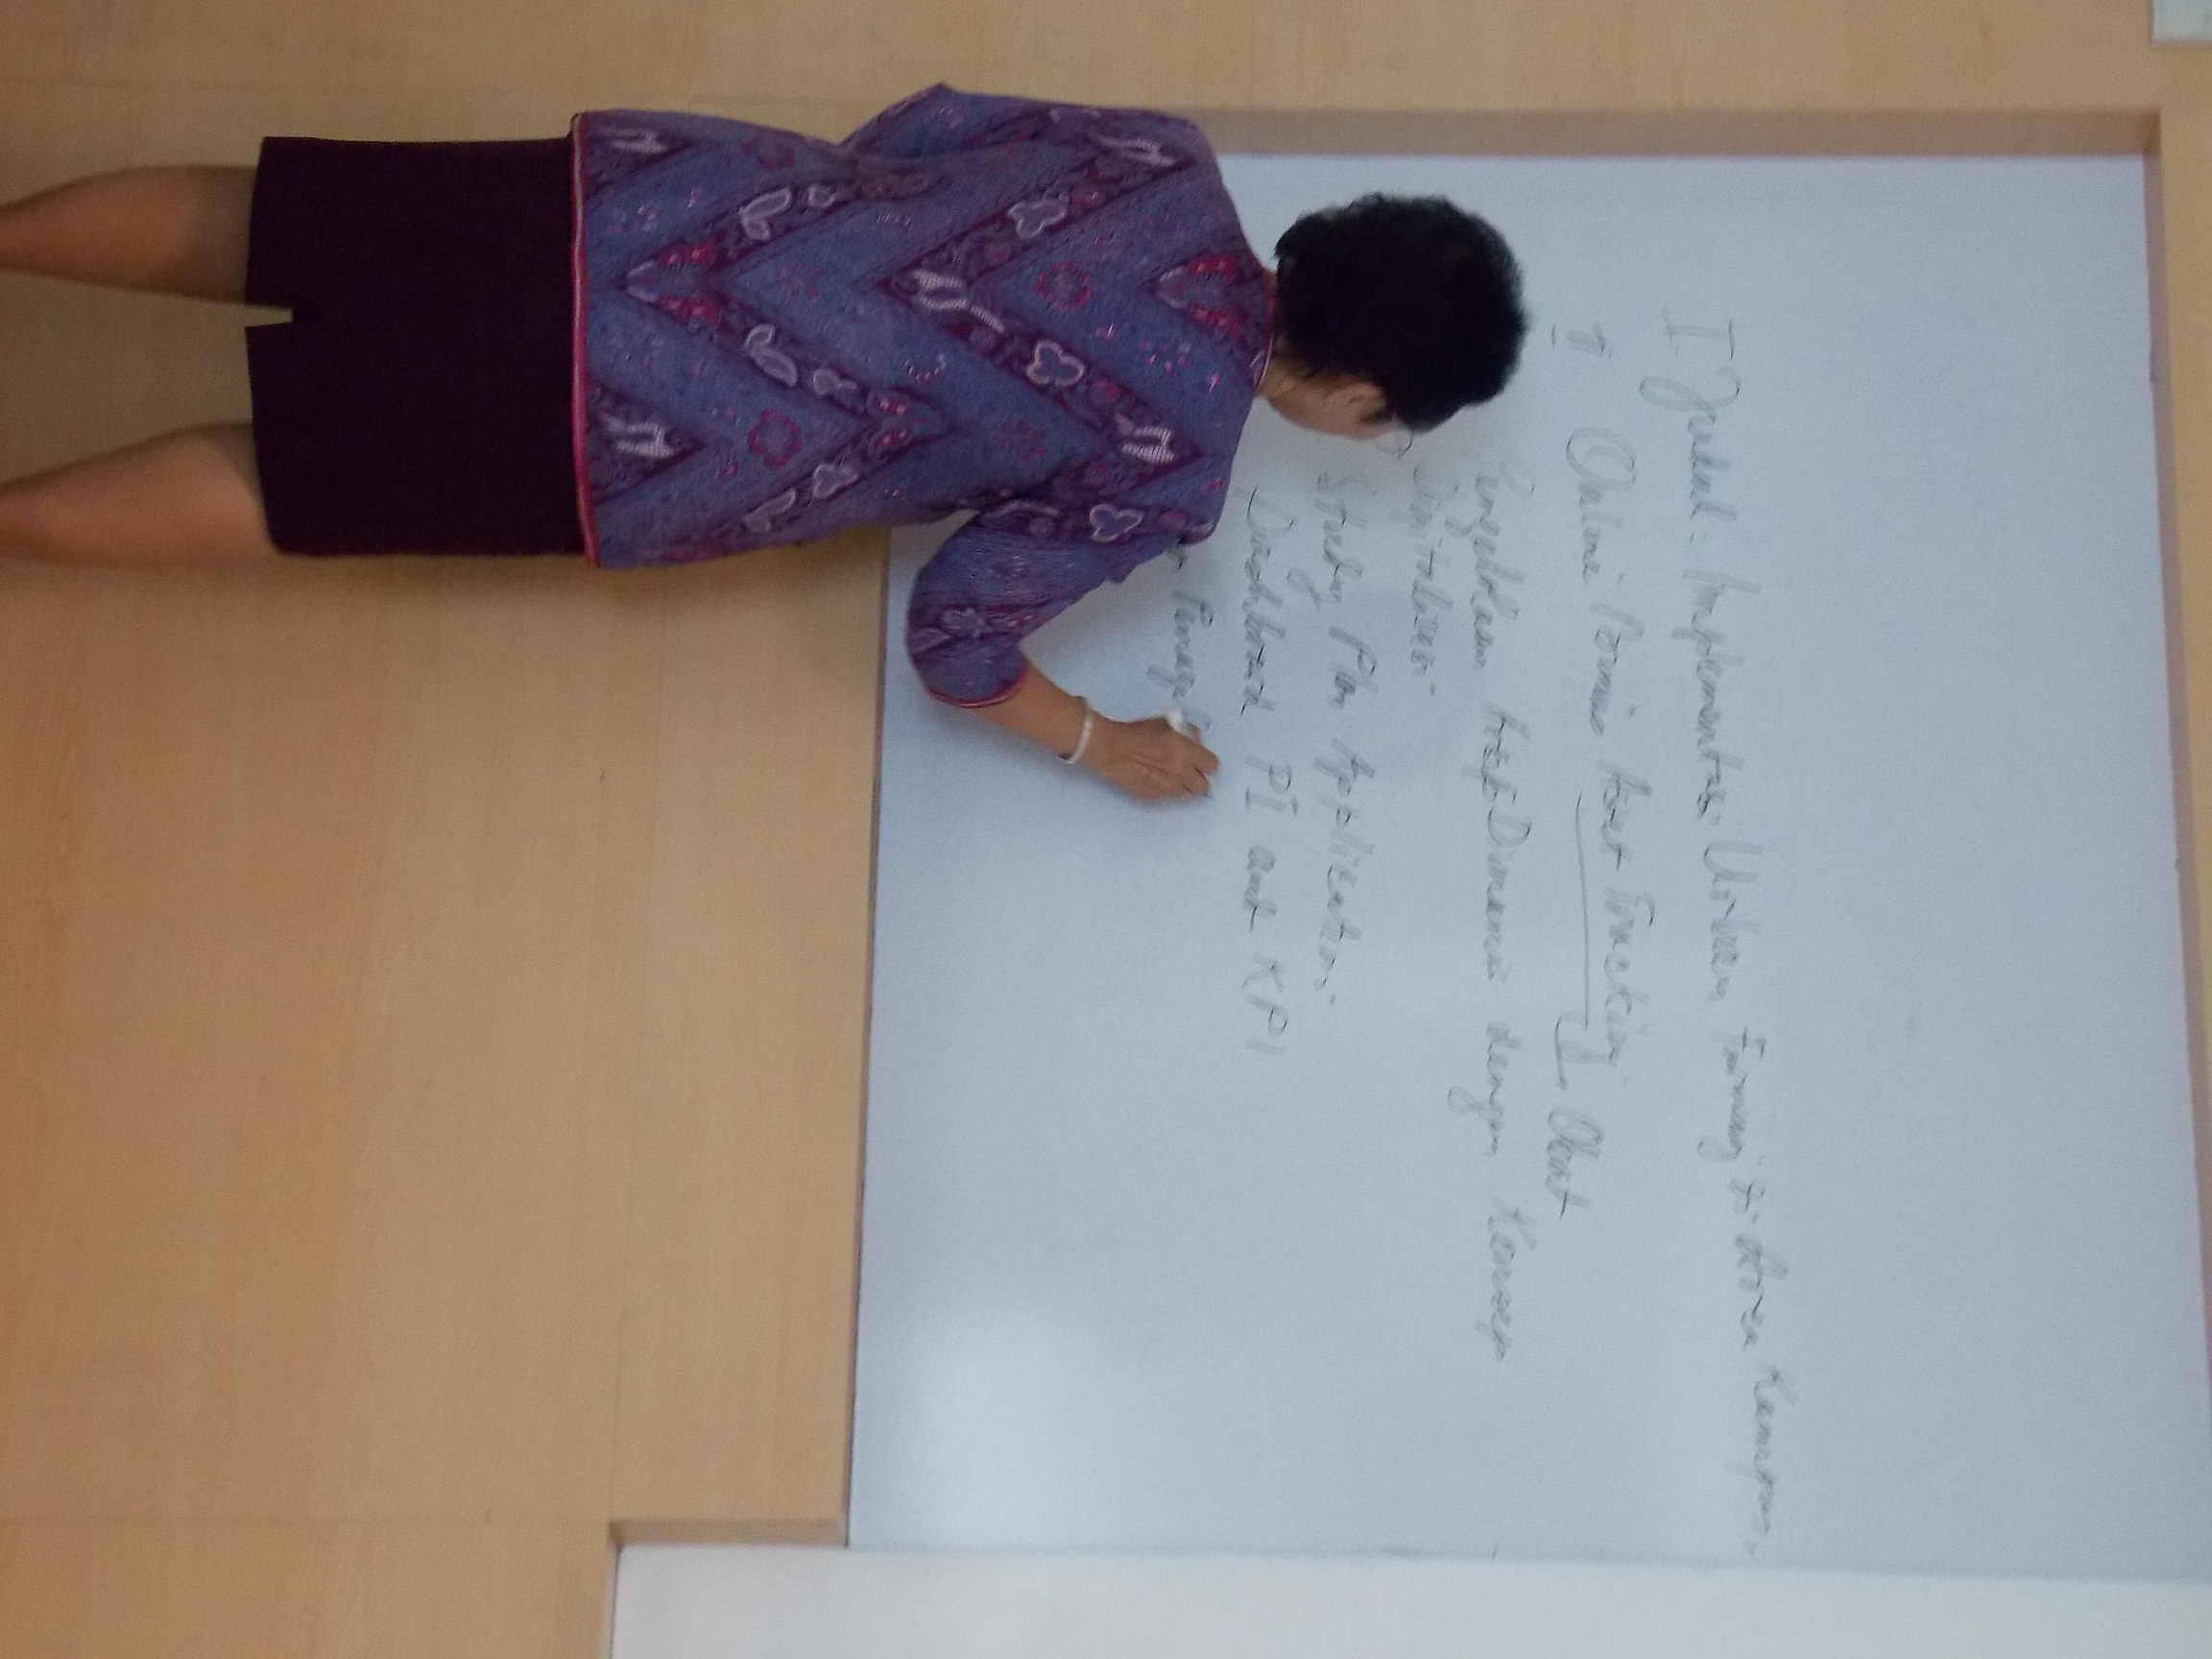 I. Judul = Implementasi Urban Farming di Area Kampus.
II Online Asset Tracking Obat
Pengelolaan Arsip Dinamis dengan Konsep
Digitalisasi
Study Plan Application
Dashboard PI and KPI